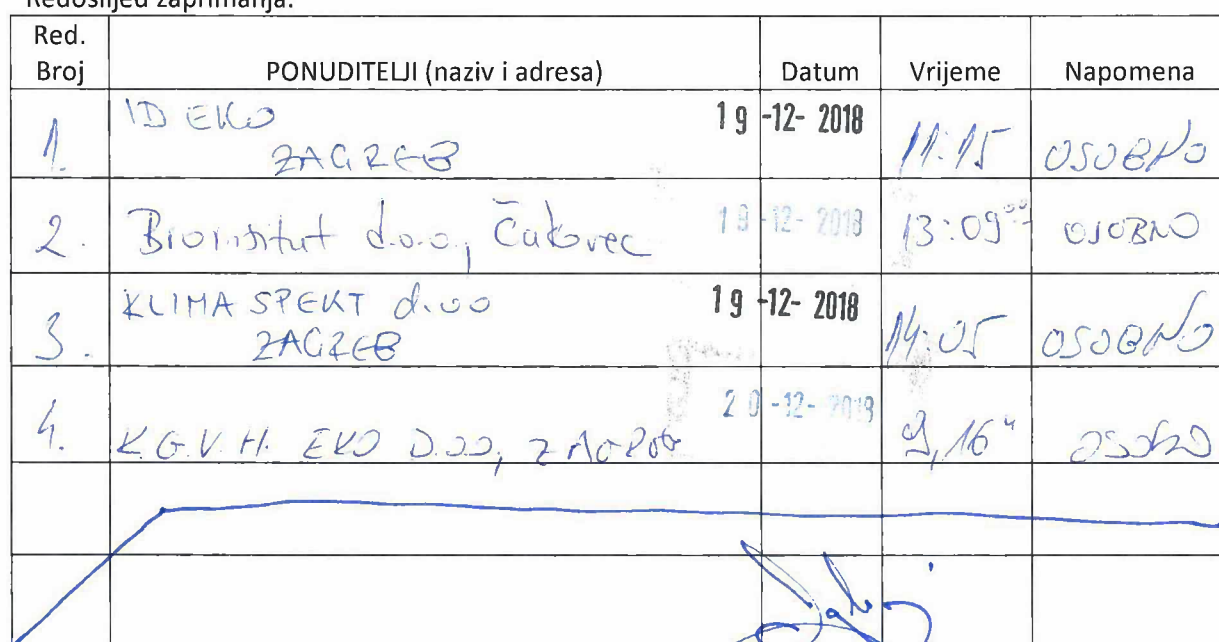 Redoslijed zaprimanja:
Red. Broj PONUDITELJI (naziv i adresa) Datum Vrijeme Napomena
1. ID EKO 19-12-2018 11:15 OSOBNO
ZAGREB
2. Bioinstitut d.o.o., Čakovec 19-12-2018 13:09 OSOBNO
KLIMA SPEKT d.oo 19-12-2018
3. ZAGREB 14:05 OSOBNO
4. K.G.V.H. EKO D.O.O, ZAGREB 20-12-2018 9,16 OSOBNO